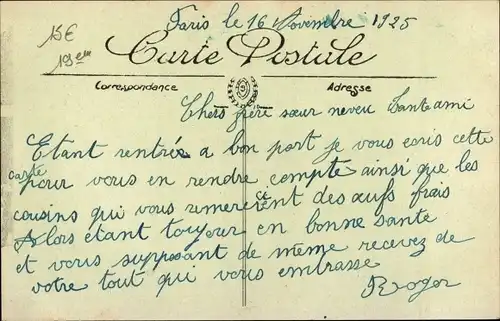 Paris le 16 Novembre 1925
15€
19em
Carte Postale
Correspondance Adresse
Chers frère sœur neveu
Etant rentrés a bon port je vous ecris cette
carte
pour vous en rendre compte ainsi que les
cousins qui vous remercient des œufs frais
Alors etant toujour en bonne santé
et vous supposant de même recevez de
votre tout qui vous embrasse
Roger